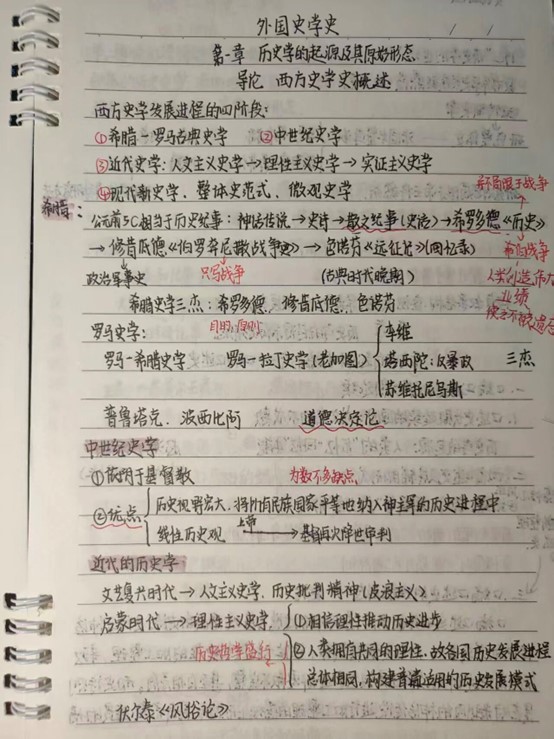 外国史学史
第一章 历史学的起源及其原始形态
导论 西方史学史概述
西方史学发展进程的四阶段:
①希腊-罗马古典史学 ②中世纪史学
③近代史学:人文主义史学→理性主义史学→实证主义史学
④现代新史学、整体史范式、微观史学
并不局限于战争
希腊:
公元前5C相当于历史纪事:神话传说→史诗→散文纪事(史话)→希罗多德《历史》
→修昔底德《伯罗奔尼撒战争史》→色诺芬《远征记》(回忆录)
希波战争
政治军事史
只写战争
(古典时代晚期)
人类创造伟大
业绩
希腊史学三杰:希罗多德、修昔底德、色诺芬
罗马史学:
罗马-希腊史学 罗马-拉丁史学(老加图)
李维
塔西陀:反暴政
苏维托尼乌斯
三杰
普鲁塔克、波西比阿 道德决定论:
中世纪史学
①依附于基督教
为数不多缺点
②优点
历史视野宏大,将所有民族国家平等地纳入神主宰的历史进程中
线性历史观 上帝→基督再次降世审判
近代的历史学
文艺复兴时代→人文主义史学、历史批判精神(皮浪主义)
启蒙时代→理性主义史学
①相信理性推动历史进步
历史哲学盛行
②人类拥有共同的理性,故各国历史发展进程
总体相同,构建普遍适用的历史发展模式
伏尔泰《风俗论》